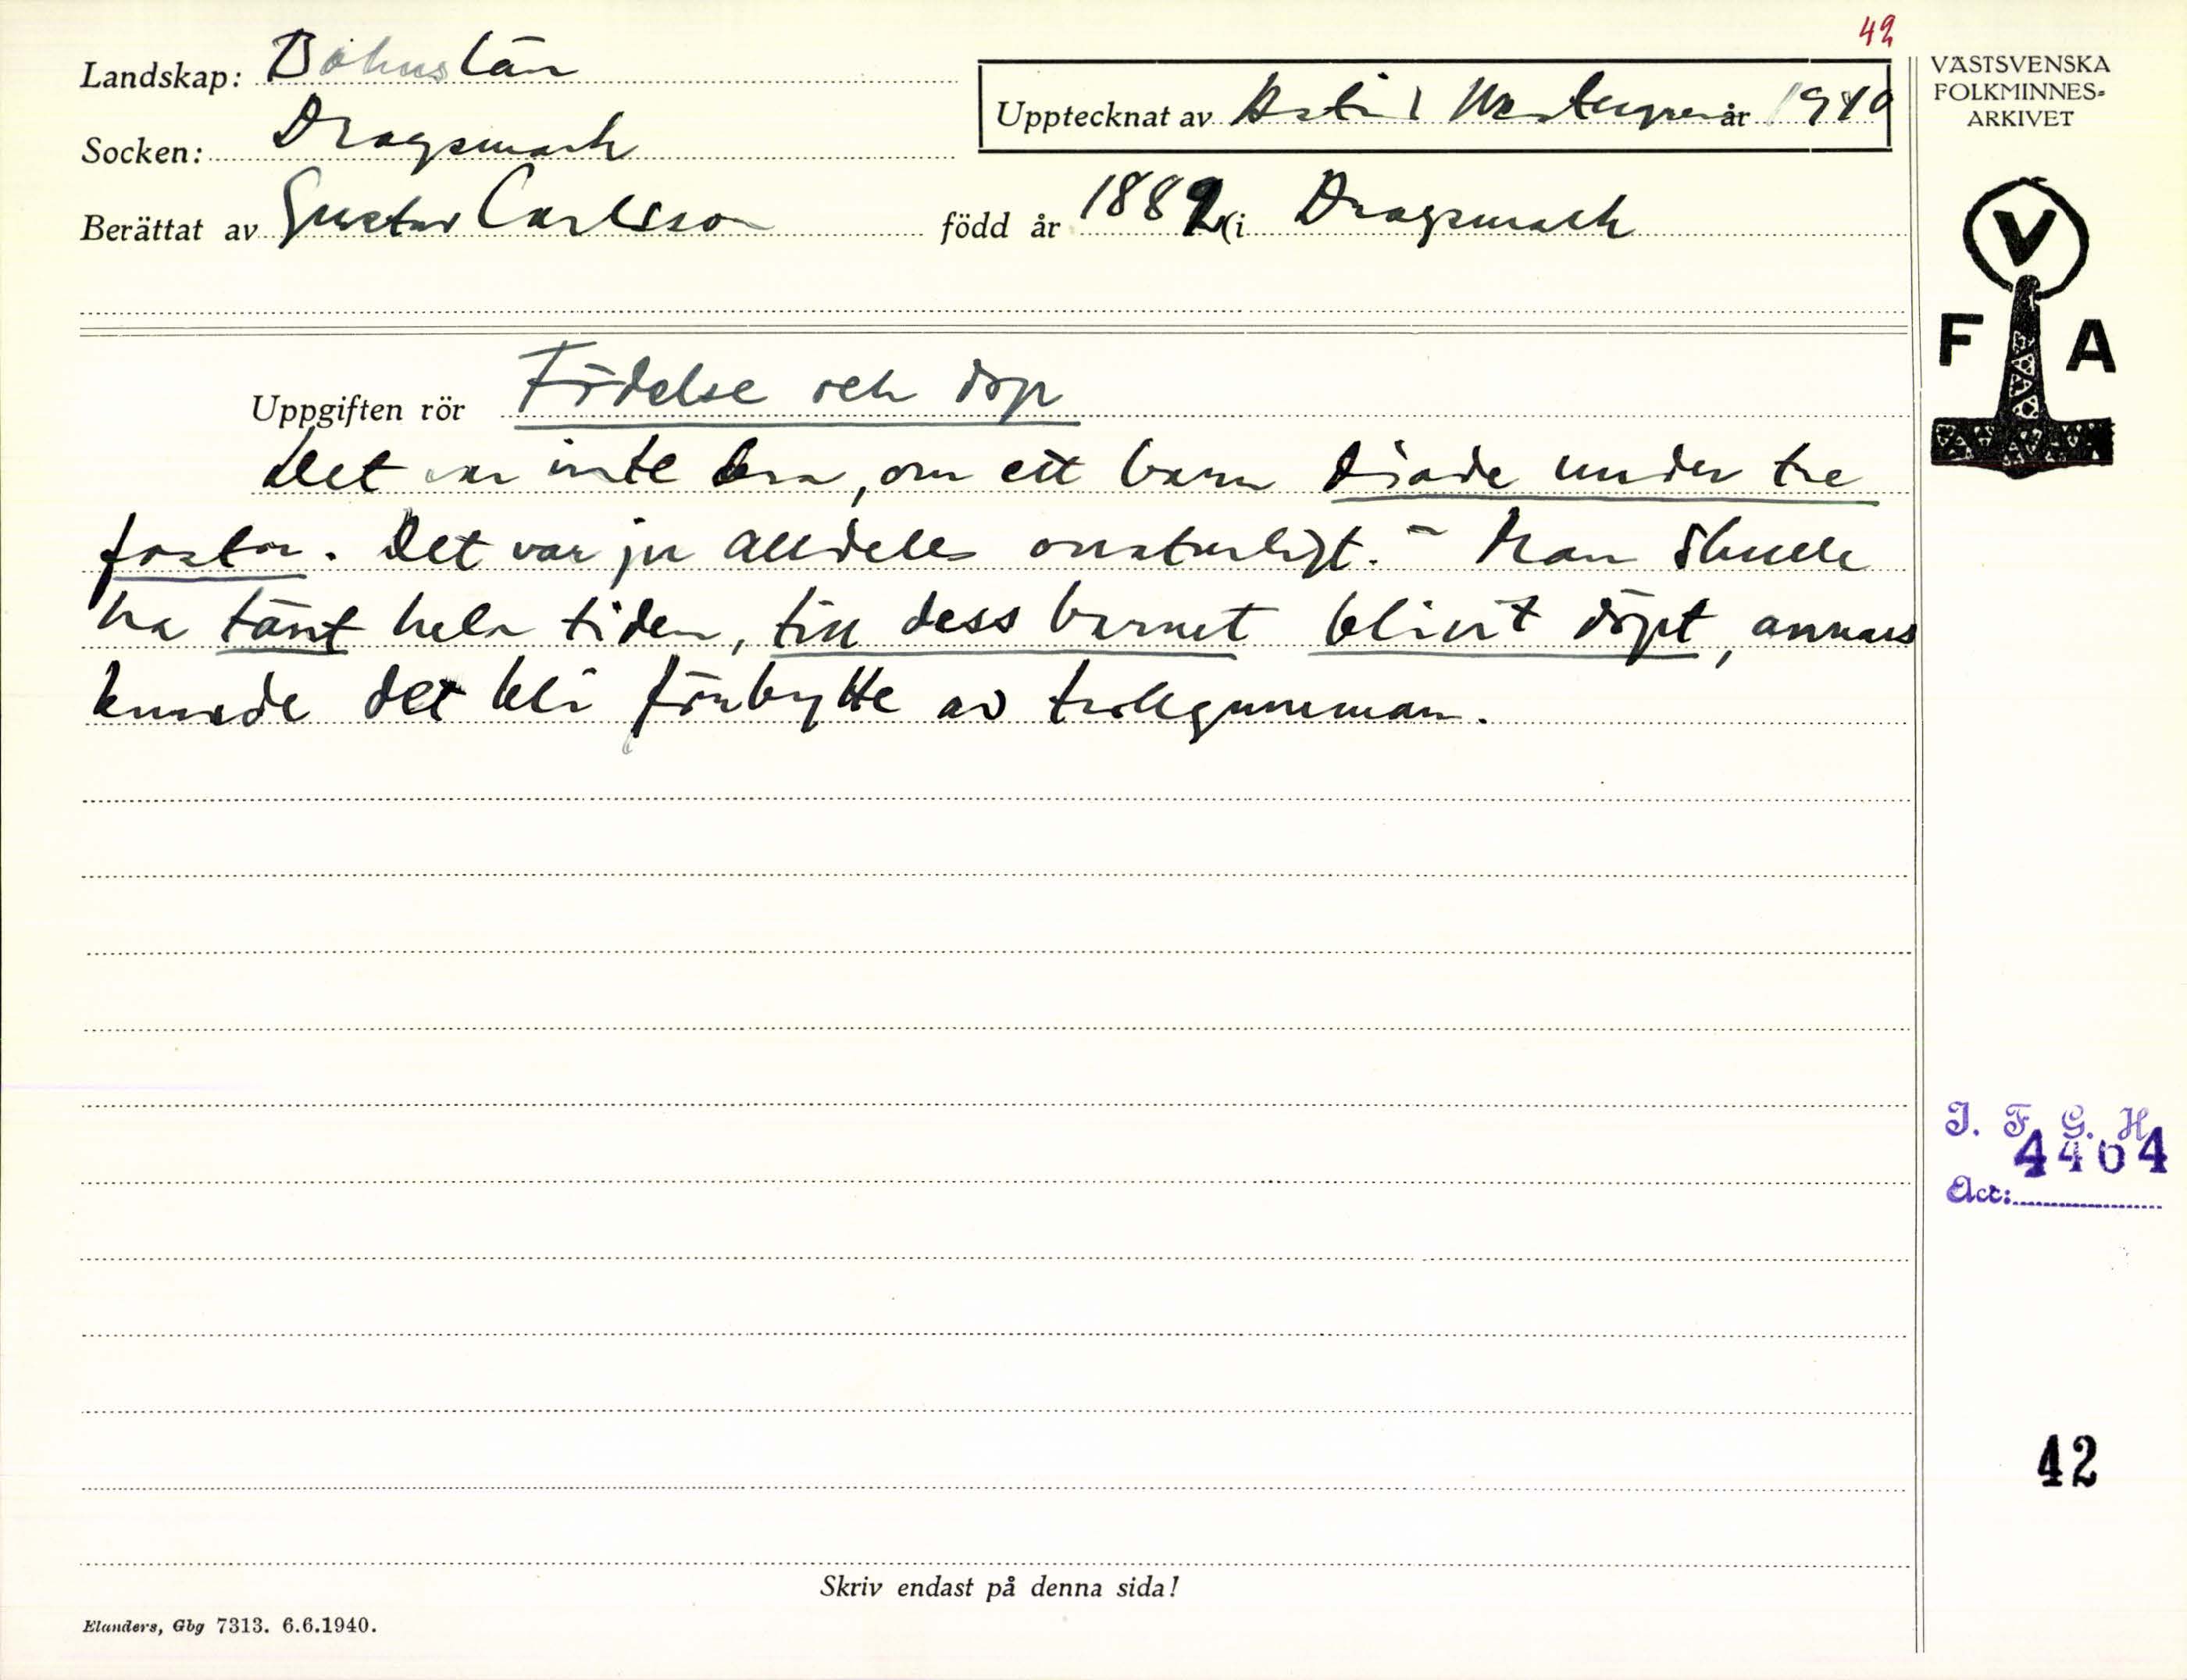 42
Landskap: Bohuslän
Upptecknat av Astrid Westergren år 1940
Socken: Dragsmark
Berättat av Gustav Carlsson född år 1882 i Dragsmark
Uppgiften rör Födelse och dop
Det var inte bra, om ett barn diade under tre
fastor. Det var ju alldeles onaturligt. – Man skulle
ha tänt hela tiden, till dess barnet blivit döpt, annars
kunde det bli förbytte av trollgumman.
Skriv endast på denna sida!
Elanders, Gbg 7313. 6.6.1940.
VÄSTSVENSKA
FOLKMINNES-
ARKIVET
V
F A
I. F. G. H.
4464
Acc:
42